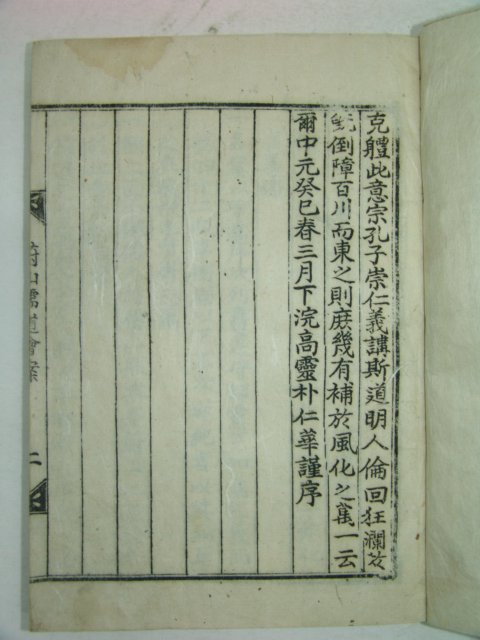 克軆此意宗孔子崇仁義講斯道明人倫回狂瀾於
既倒障百川而東之則庶幾有補於風化之萬一云
爾中元癸巳春三月下浣高靈朴仁華謹序
蔚山儒道會案
二